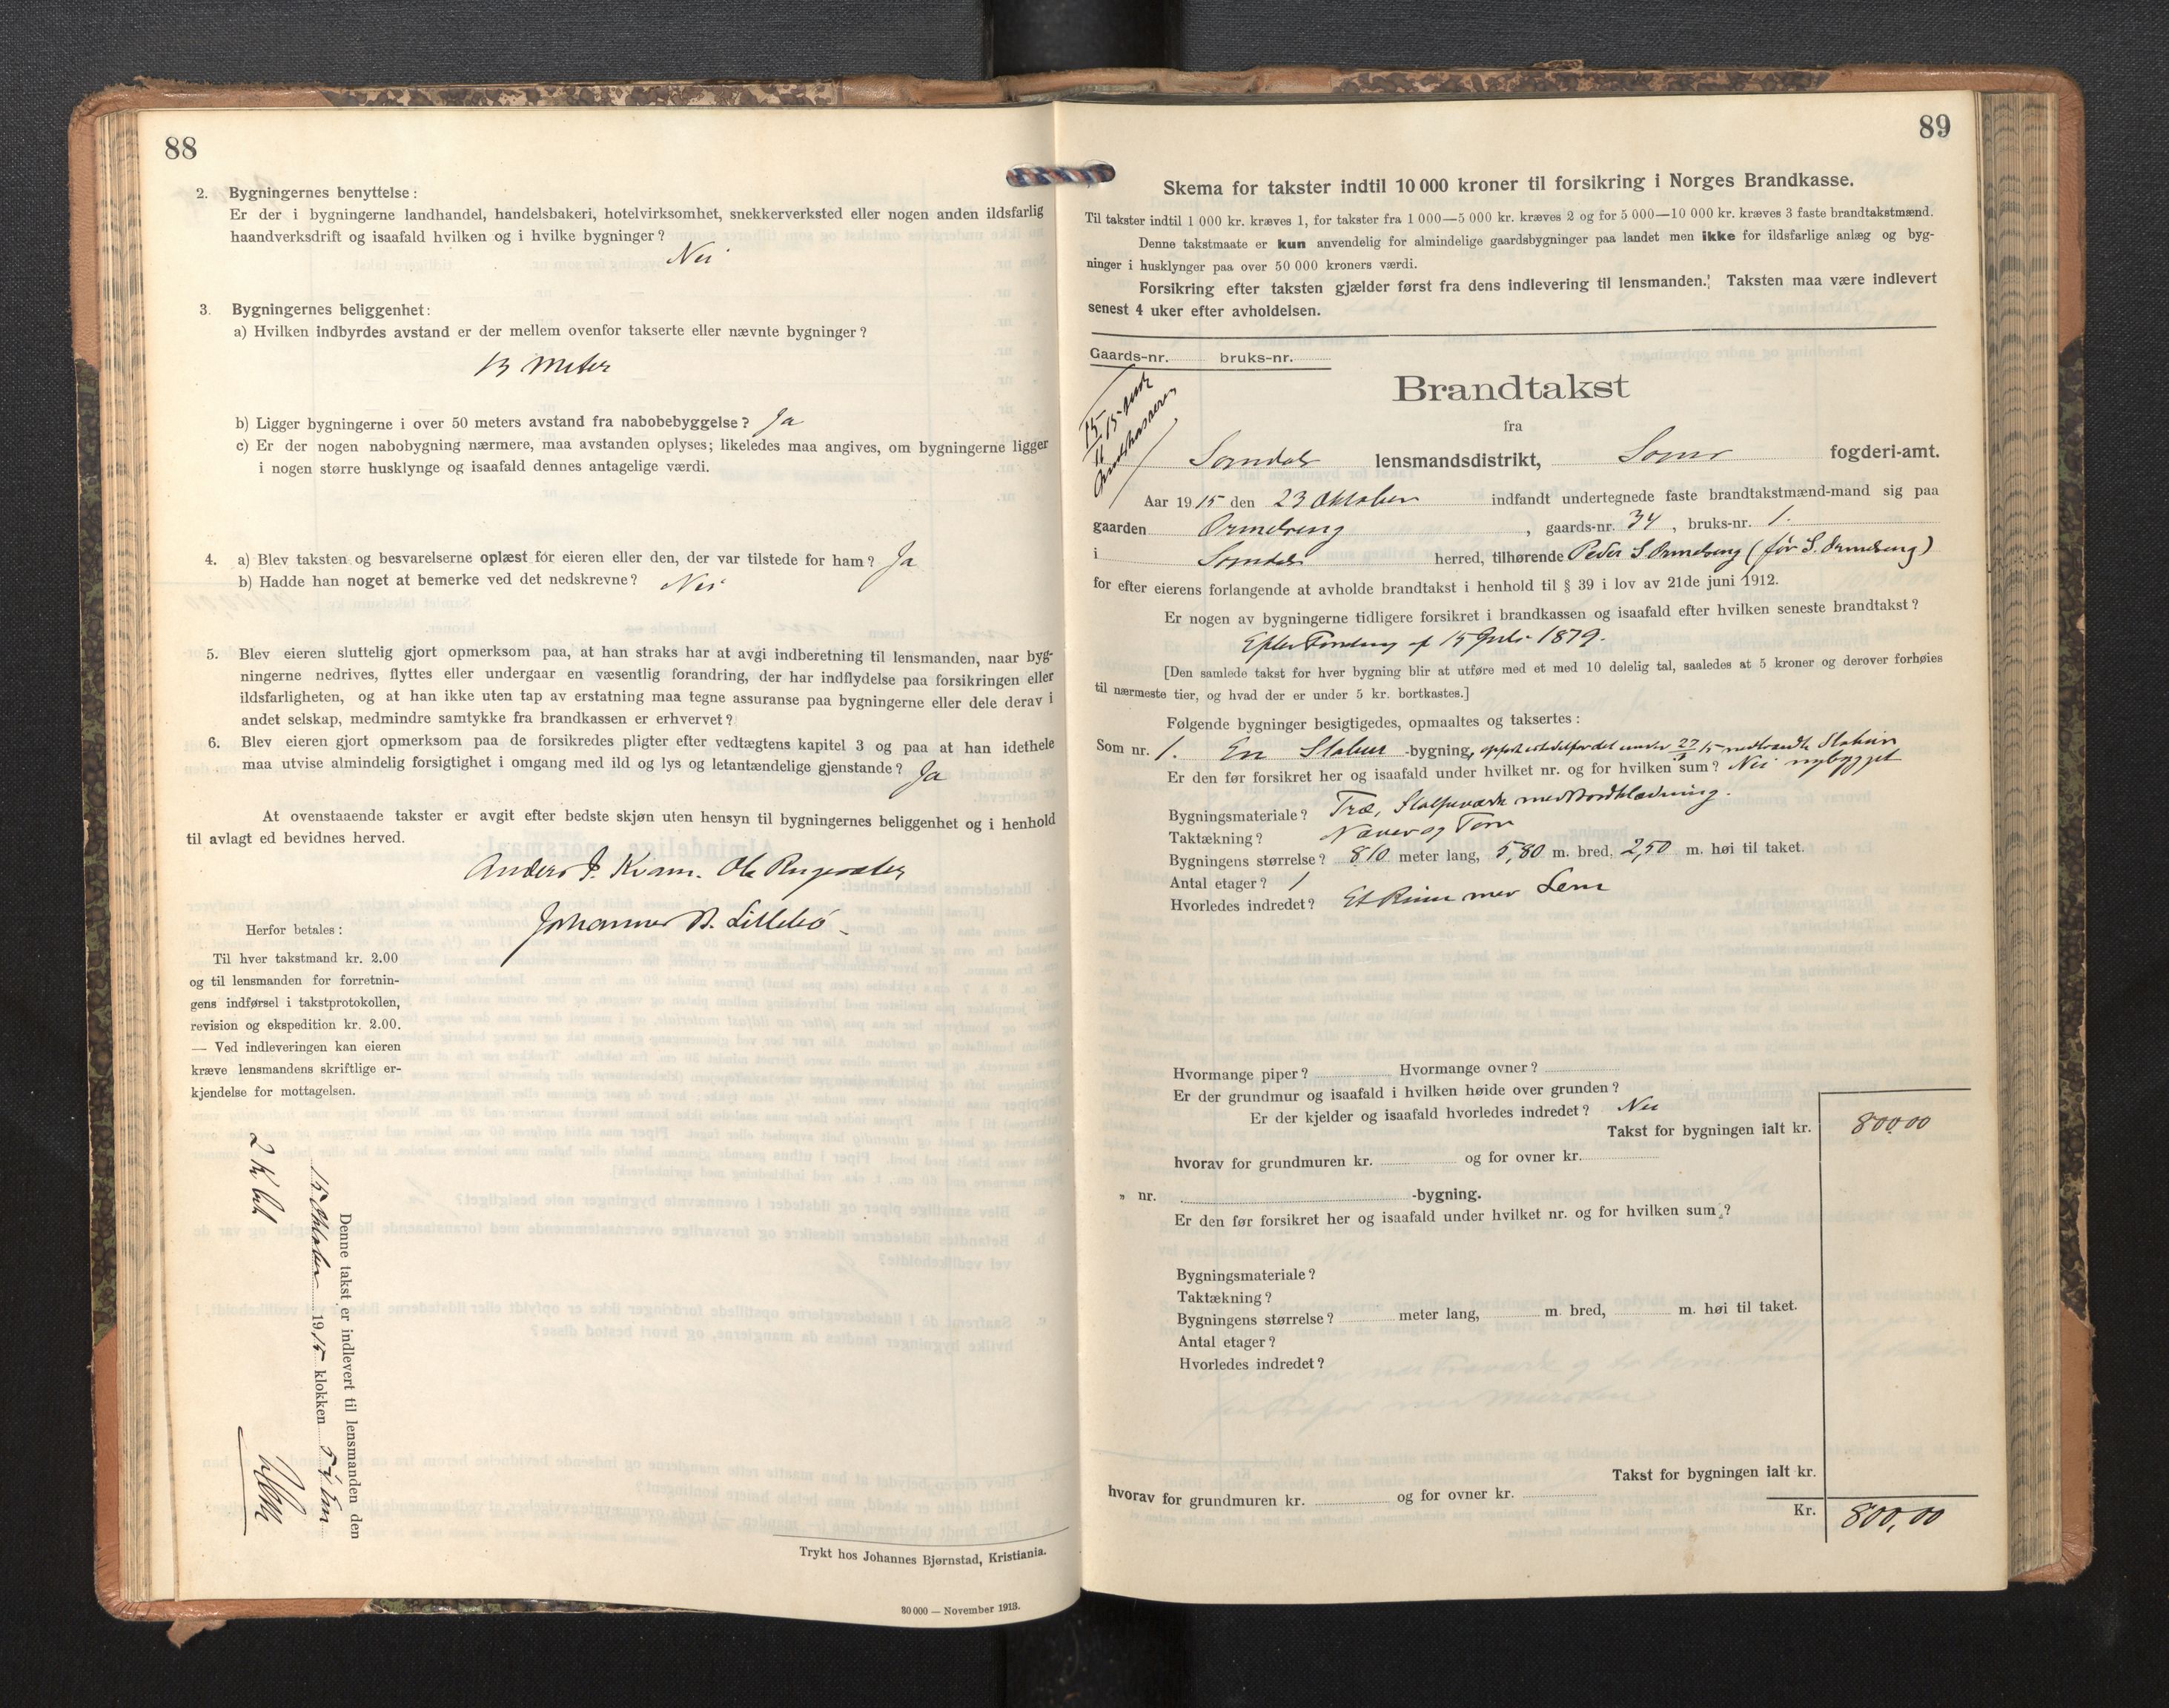 88
2. Bygningernes benyttelse:
Er der i bygningerne landhandel, handelsbakeri, hotelvirksomhet, snekkerverksted eller nogen anden ildsfarlig
haandverksdrift og isaafald hvilken og i hvilke bygninger?
Nei
3. Bygningernes beliggenhet:
a) Hvilken indbyrdes avstand er der mellem ovenfor takserte eller nævnte bygninger?
13 meter
b) Ligger bygningerne i over 50 meters avstand fra nabobebyggelse? Ja
c) Er der nogen nabobygning nærmere, maa avstanden oplyses; likeledes maa angives, om bygningerne ligger
i nogen større husklynge og isaafald dennes antagelige værdi.
4. a) Blev taksten og besvarelserne oplæst for eieren eller den, der var tilstede for ham? Ja
b) Hadde han noget at bemerke ved det nedskrevne? Nei
5. Blev eieren sluttelig gjort opmerksom paa, at han straks har at avgi indberetning til lensmanden, naar byg-
ningerne nedrives, flyttes eller undergaar en væsentlig forandring, der har indflydelse paa forsikringen eller
ildsfarligheten, og at han ikke uten tap av erstatning maa tegne assuranse paa bygningerne eller dele derav i
andet selskap, medmindre samtykke fra brandkassen er erhvervet?
6. Blev eieren gjort opmerksom paa de forsikredes pligter efter vedtægtens kapitel 3 og paa at han idethele
maa utvise almindelig forsigtighet i omgang med ild og lys og letantændelige gjenstande? Ja
At ovenstaaende takster er avgit efter bedste skjøn uten hensyn til bygningernes beliggenhet og i henhold
til avlagt ed bevidnes herved.
Anders J. Kvam. Ola
Johannes B. Lillebö
Herfor betales:
Til hver takstmand kr. 2.00
og til lensmanden for forretnin-
gens indførsel i takstprotokollen,
revision og ekspedition kr. 2.00.
— Ved indleveringen kan eieren
kræve lensmandens skriftlige er-
kjendelse for mottagelsen.
Denne takst er indlevert til lensmanden den
15 Oktober 1915 klokken 5
2 kr bet
Trykt hos Johannes Bjørnstad, Kristiania.
30 000 — November 1913.
89
Skema for takster indtil 10 000 kroner til forsikring i Norges Brandkasse.
Til takster indtil 1 000 kr. kræves 1, for takster fra 1 000—5 000 kr. kræves 2 og for 5 000—10 000 kr. kræves 3 faste brandtakstmænd.
Denne takstmaate er kun anvendelig for almindelige gaardsbygninger paa landet men ikke for ildsfarlige anlæg og byg-
ninger i husklynger paa over 50 000 kroners værdi.
Forsikring efter taksten gjælder først fra dens indlevering til lensmanden. Taksten maa være indlevert
senest 4 uker efter avholdelsen.
Gaards-nr. bruks-nr.
Brandtakst
fra
Sogndal lensmandsdistrikt, Sogns fogderi-amt.
Aar 1915 den 23 Oktober indfandt undertegnede faste brandtakstmænd-mand sig paa
gaarden Ormelseng, gaards-nr. 34, bruks-nr. 1.
i Sogndal herred, tilhørende Peder S. Ormelseng (før S. Ormelseng)
for efter eierens forlangende at avholde brandtakst i henhold til § 39 i lov av 21de juni 1912.
Er nogen av bygningerne tidligere forsikret i brandkassen og isaafald efter hvilken seneste brandtakst?
Efter Forretning af 15 Juli 1879.
[Den samlede takst for hver bygning blir at utføre med et med 10 delelig tal, saaledes at 5 kroner og derover forhøies
til nærmeste tier, og hvad der er under 5 kr. bortkastes.]
Følgende bygninger besigtigedes, opmaaltes og taksertes:
Som nr. 1. En Stabur -bygning, opført istedetfor det under 27/3 15 nedbrændte Stabur
Er den før forsikret her og isaafald under hvilket nr. og for hvilken sum? Nei nybygget
Bygningsmateriale? Træ, Stolpeværk med Bordklædning.
Taktækning? Næver og Torv
Bygningens størrelse? 8,10 meter lang, 5,80 m. bred, 2,50 m. høi til taket.
Antal etager? 1
Hvorledes indredet? Et Rum med Lem
Hvormange piper? Hvormange ovner?
Er der grundmur og isaafald i hvilken høide over grunden?
Er der kjelder og isaafald hvorledes indredet? Nei
Takst for bygningen ialt kr. 800,00
hvorav for grundmuren kr. og for ovner kr.
„ nr. -bygning.
Er den før forsikret her og isaafald under hvilket nr. og for hvilken sum?
Bygningsmateriale?
Taktækning?
Bygningens størrelse? meter lang, m. bred, m. høi til taket.
Antal etager?
Hvorledes indredet?
Takst for bygningen ialt kr.
hvorav for grundmuren kr. og for ovner kr.
Kr. 800,00